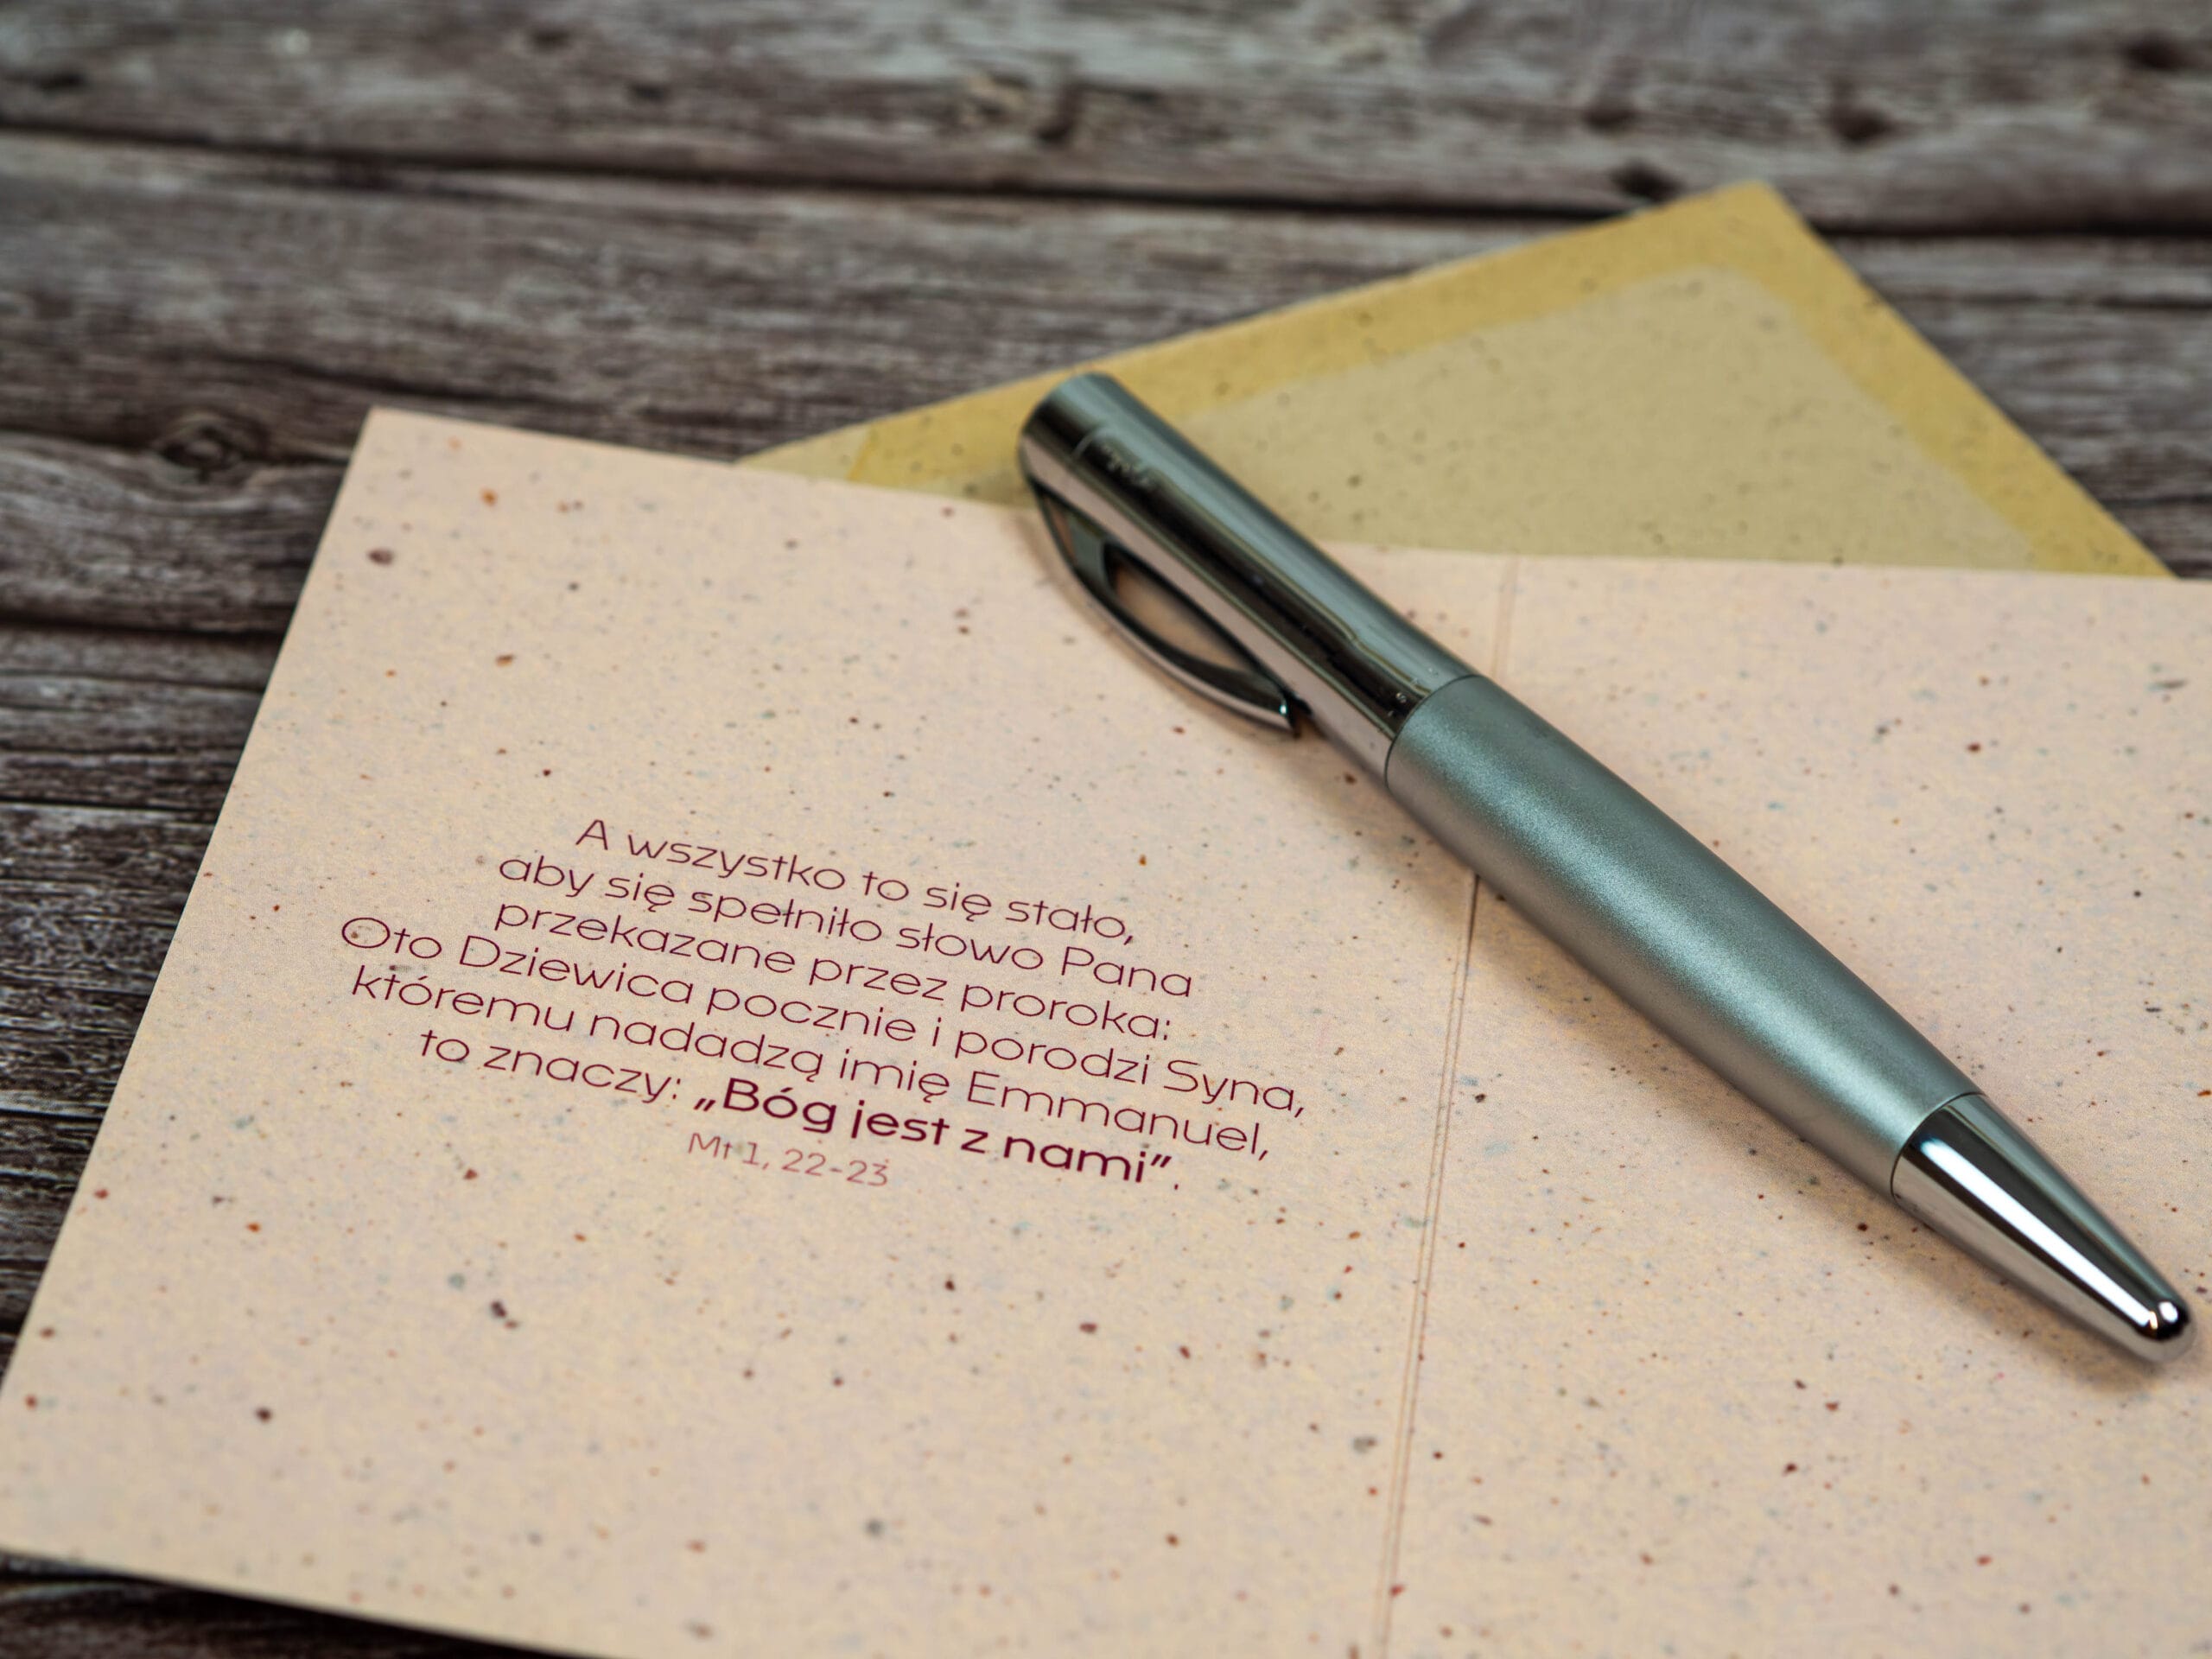 A wszystko to się stało,
aby się spełniło słowo Pana
przekazane przez proroka:
Oto Dziewica pocznie i porodzi Syna,
któremu nadadzą imię Emmanuel,
to znaczy: „Bóg jest z nami”.
Mt 1, 22-23